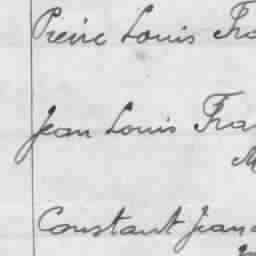 Pierre Louis Fra
Jean Louis Fra
M
Constant Jean